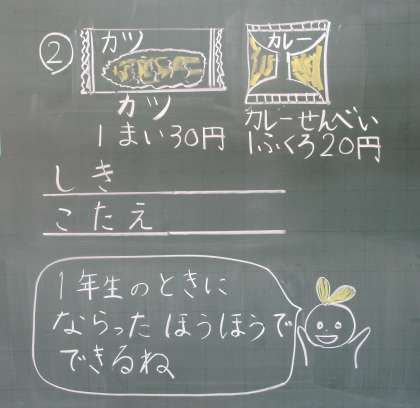 ②
カツ
カレー
カツ
1まい30円
カレーせんべい
1ふくろ20円
しき
こたえ
1年生のときに
ならったほうほうで
できるね